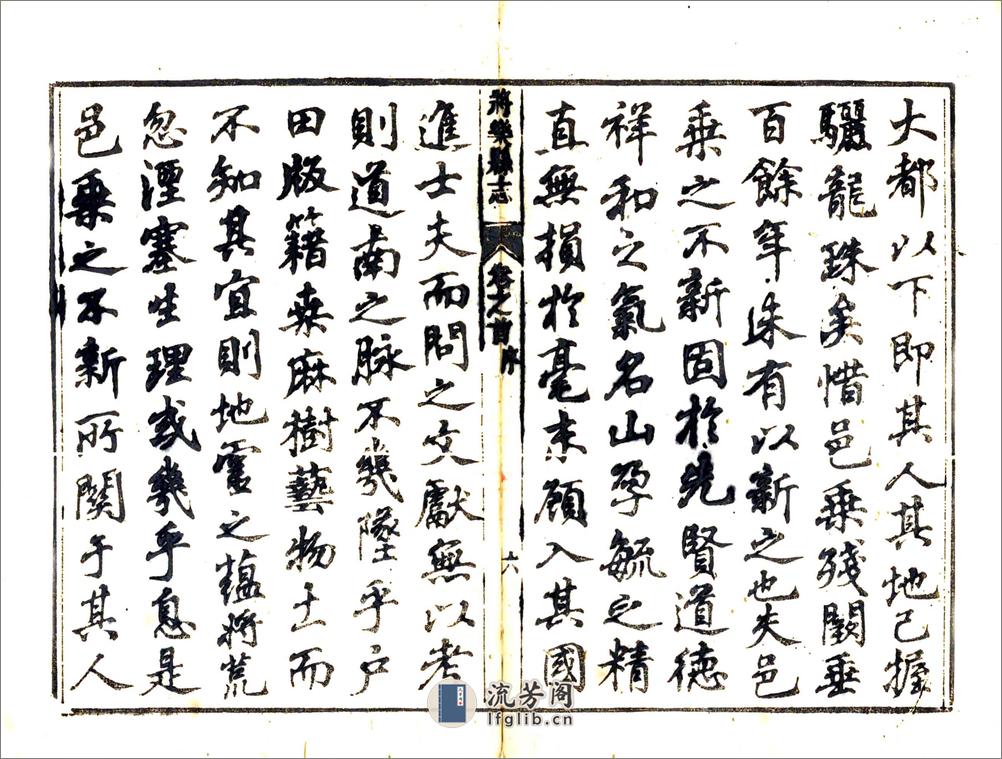 大都以下即其人其地已握
驪龍珠矣惜邑乗殘闕垂
百餘年未有以新之也夫邑
乗之不新固於先賢道德
祥和之氣名山孕毓之精
直無損於毫末顧入其國
將樂縣志
卷之首
序
六
進士夫而問之文獻無以考
則道南之脉不幾墜乎户
田版籍桒麻樹藝物土而
不知其宜則地靈之藴將荒
忽湮塞生理或幾乎息是
邑乗之不新所關于其人
流芳阁
lfglib.cn